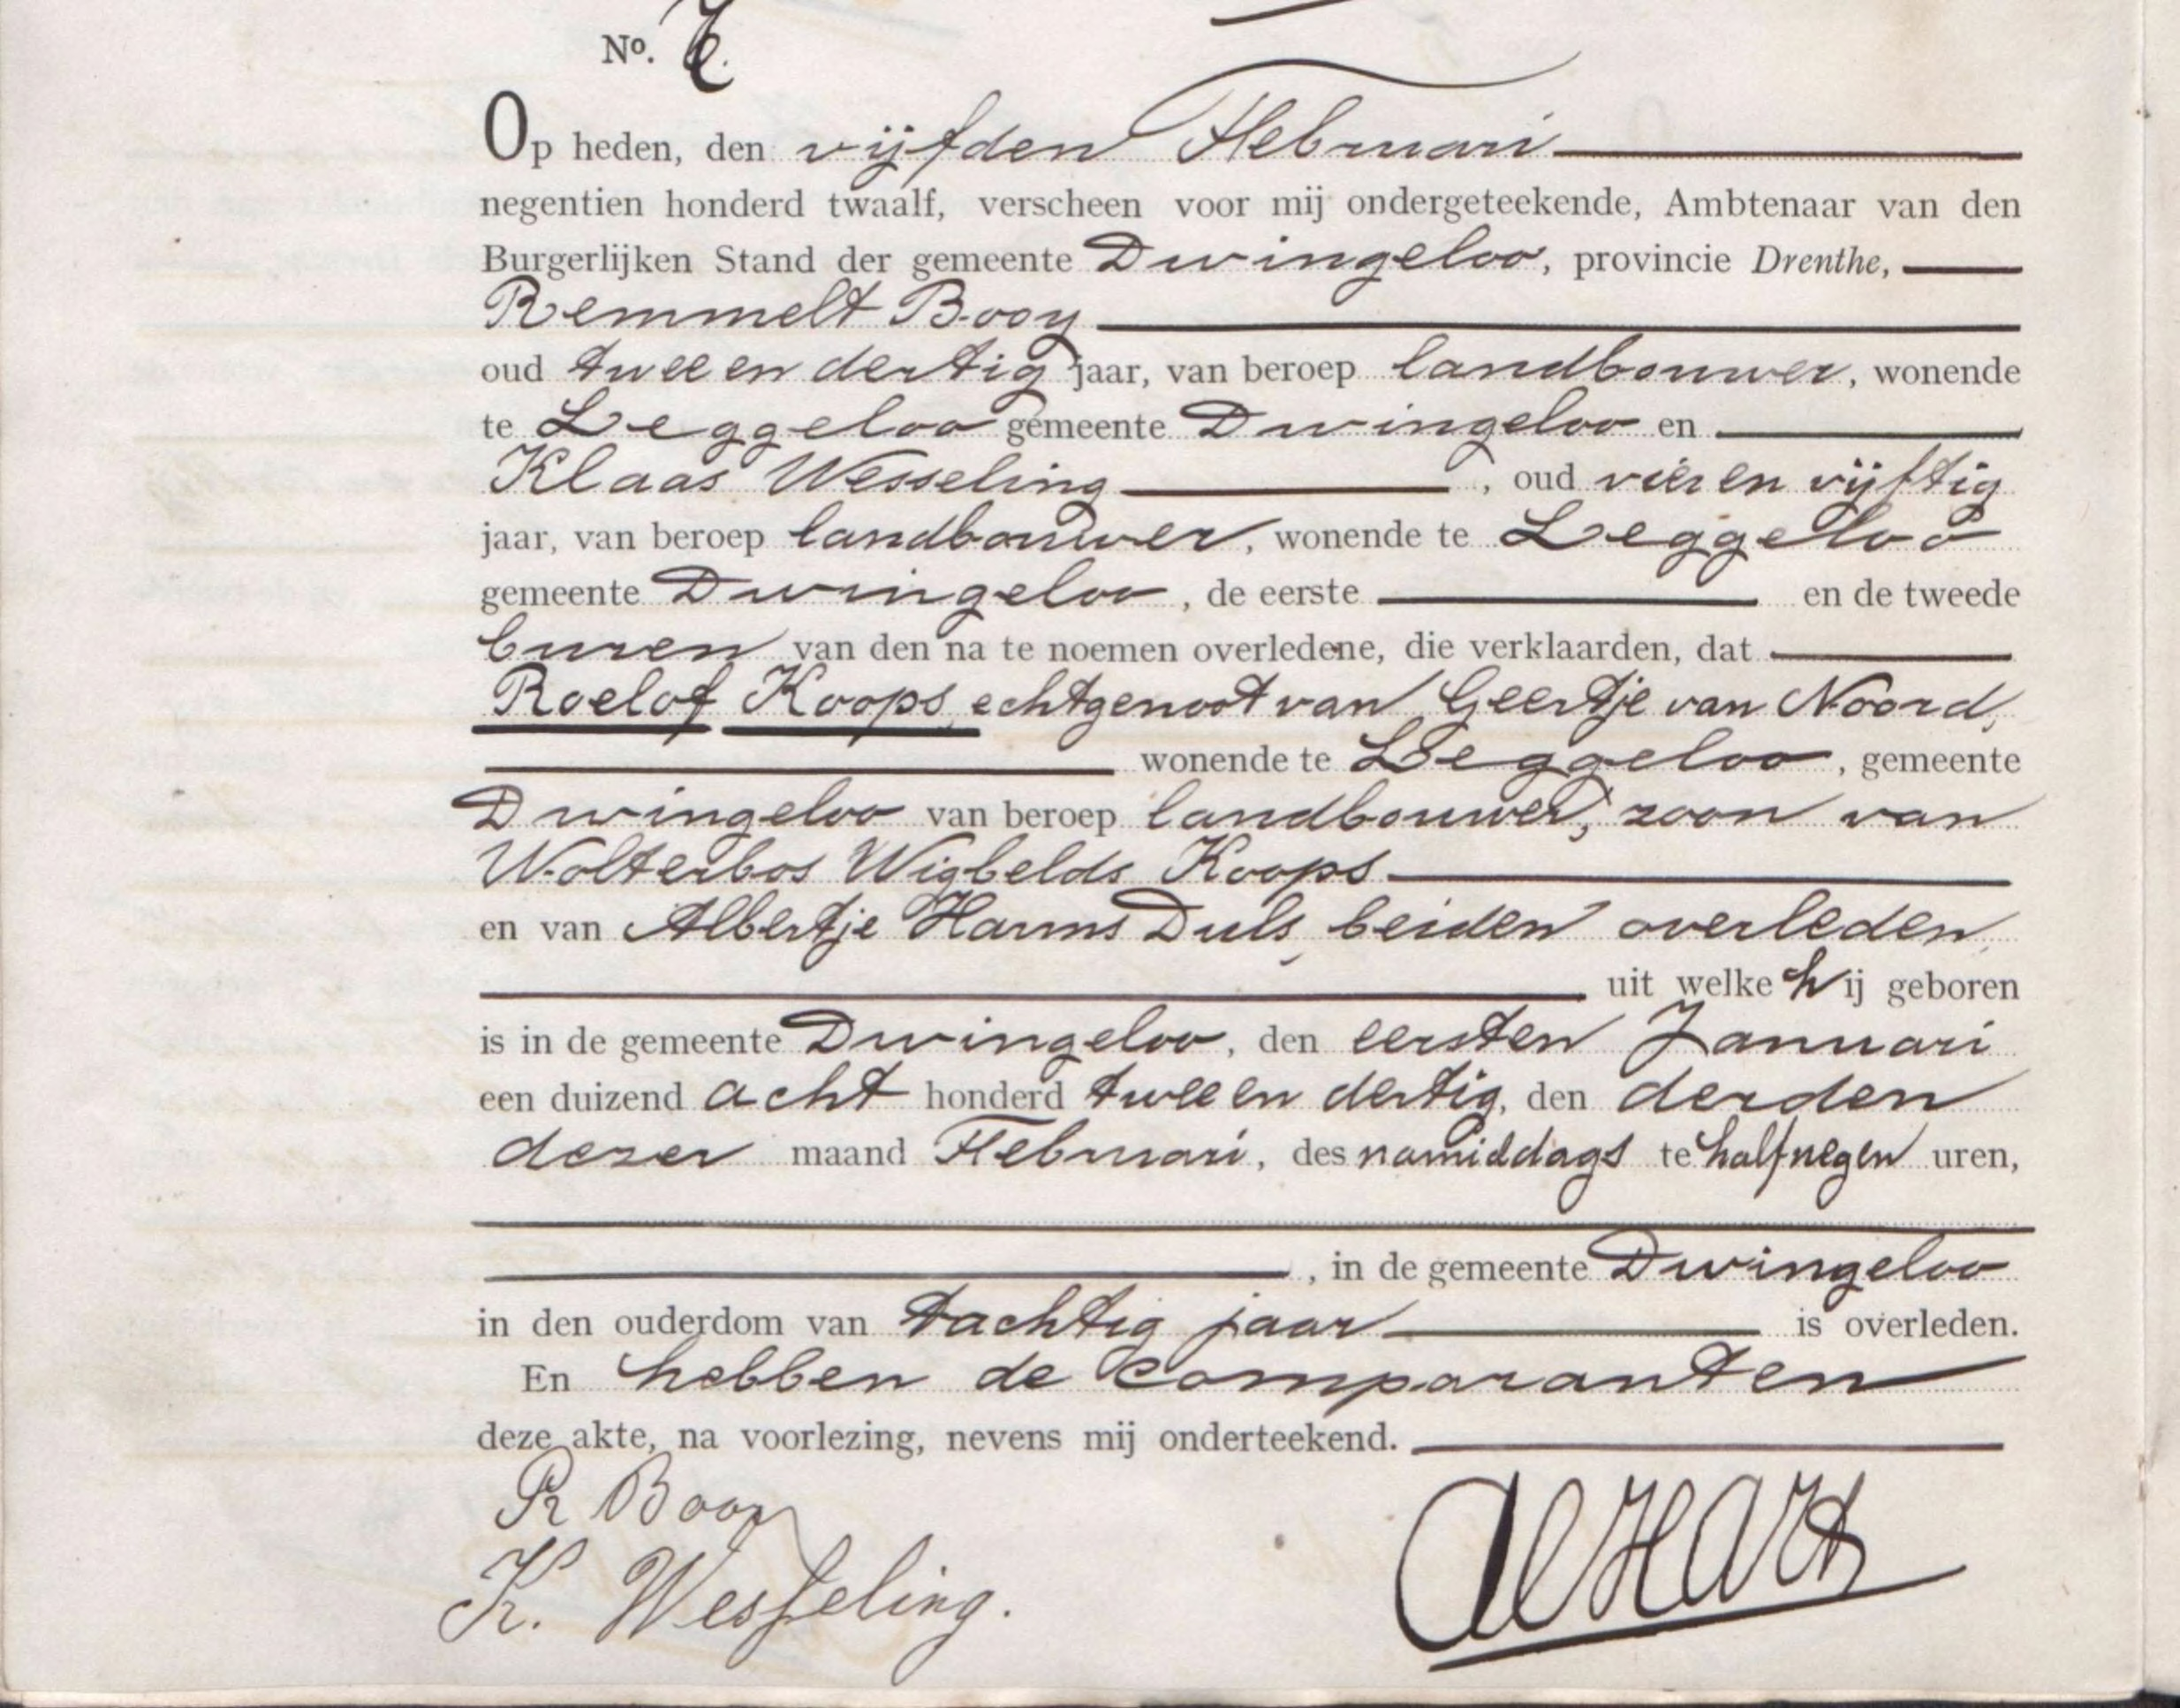 No. 6.
Op heden, den vijfden Februari
negentien honderd twaalf, verscheen voor mij ondergeteekende, Ambtenaar van den
Burgerlijken Stand der gemeente Dwingeloo, provincie Drenthe,
Remmelt Booy
oud twee en dertig jaar, van beroep landbouwer, wonende
te Leggeloo gemeente Dwingeloo en
Klaas Wesseling, oud vier en vijftig
jaar, van beroep landbouwer, wonende te Leggeloo
gemeente Dwingeloo, de eerste en de tweede
buren van den na te noemen overledene, die verklaarden, dat
Roelof Koops, echtgenoot van Geertje van Noord,
wonende te Leggeloo, gemeente
Dwingeloo van beroep landbouwer, zoon van
Wolterbos Wigbelds Koops
en van Albertje Harms Duls, beiden overleden,
uit welke hij geboren
is in de gemeente Dwingeloo, den eersten Januari
een duizend acht honderd twee en dertig, den derden
dezer maand Februari, des namiddags te half negen uren,
, in de gemeente Dwingeloo
in den ouderdom van tachtig jaar is overleden.
En hebben de comparanten
deze akte, na voorlezing, nevens mij onderteekend.
R Booy
K. Wesseling.